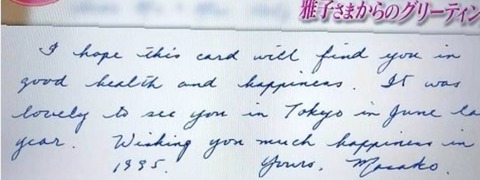 雅子さまからのグリーティン
I hope this card will find you in
good health and happiness. It was
lovely to see you in Tokyo in June la
year. Wishing you much happiness in
1995. Yours, Masako.